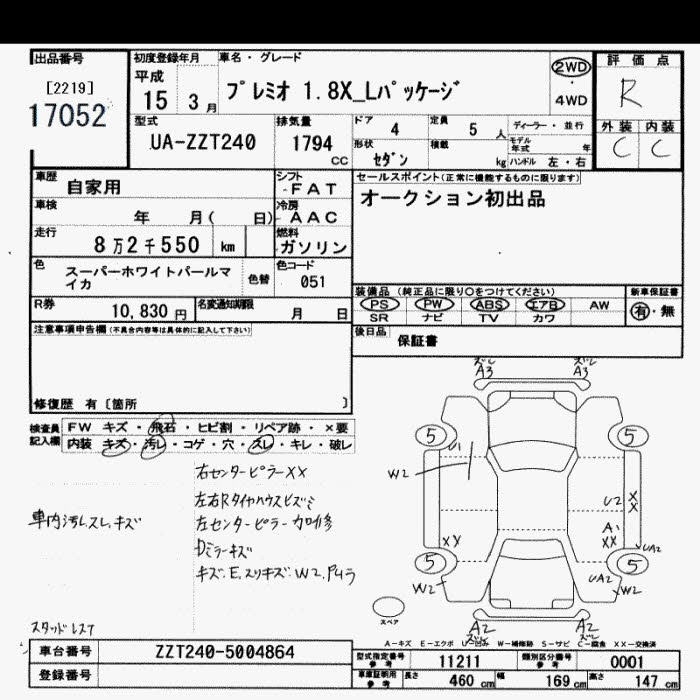 出品番号
[2219]
17052
初度登録年月
平成
15 3月
車名・グレード
プレミオ 1.8X_Lパッケージ
2WD
・
4WD
評価点
R
外装 内装
C C
型式
UA-ZZT240
排気量
1794
CC
ドア 4
定員 5 人
ディーラー・並行
形状
セダン
積載
kg
モデル年式 年
ハンドル 左・右
車歴 自家用
シフト
FAT
車検 年 月( 日)
冷房
AAC
走行 8万2千550 km
燃料
ガソリン
色
スーパーホワイトパールマイカ
色替
色コード
051
R券 10,830 円
名変通知期限 月 日
セールスポイント(正常に機能するものに限ります)
オークション初出品
装備品 (純正品に限り○をつけてください)
PS PW ABS エアB AW
SR ナビ TV カワ
新車保証書
有・無
後日品 保証書
注意事項申告欄(不具合内容等は具体的に記入して下さい)
修復歴 有〔箇所 〕
検査員記入欄
FW キズ・飛石・ヒビ割・リペア跡・×要
内装 キズ・汚レ・コゲ・穴・スレ・キレ・破レ
右センターピラーXX
左右Rタイヤハウスヒズミ
左センターピラー加修
Dミラーキズ
車内汚レスレ、キズ
スタッドレス
A3 A3
5 5
U1
W2
U2 XX
A1
XX XX
UA2
5 5
W2 UA2 W2
スペア
A2 A2
A-キズ E-エクボ U-凹み W-補修跡 S-サビ C-腐食 XX-交換済
車台番号 ZZT240-5004864
登録番号
型式指定番号 参考 11211
類別区分番号 参考 0001
車庫証明用 参考 長さ 460 cm 幅 169 cm 高さ 147 cm